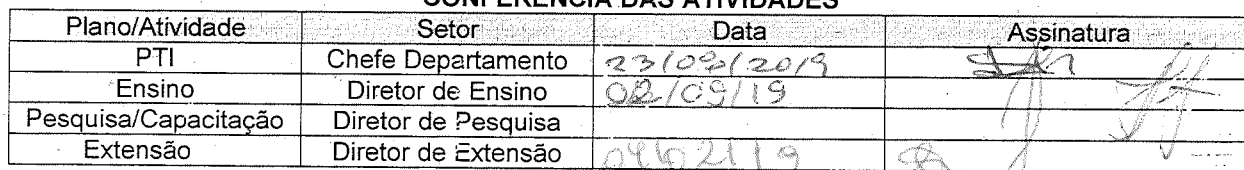 CONFERÊNCIA DAS ATIVIDADES
Plano/Atividade Setor Data Assinatura
PTI Chefe Departamento
Ensino Diretor de Ensino 02/09/19
Pesquisa/Capacitação Diretor de Pesquisa
Extensão Diretor de Extensão